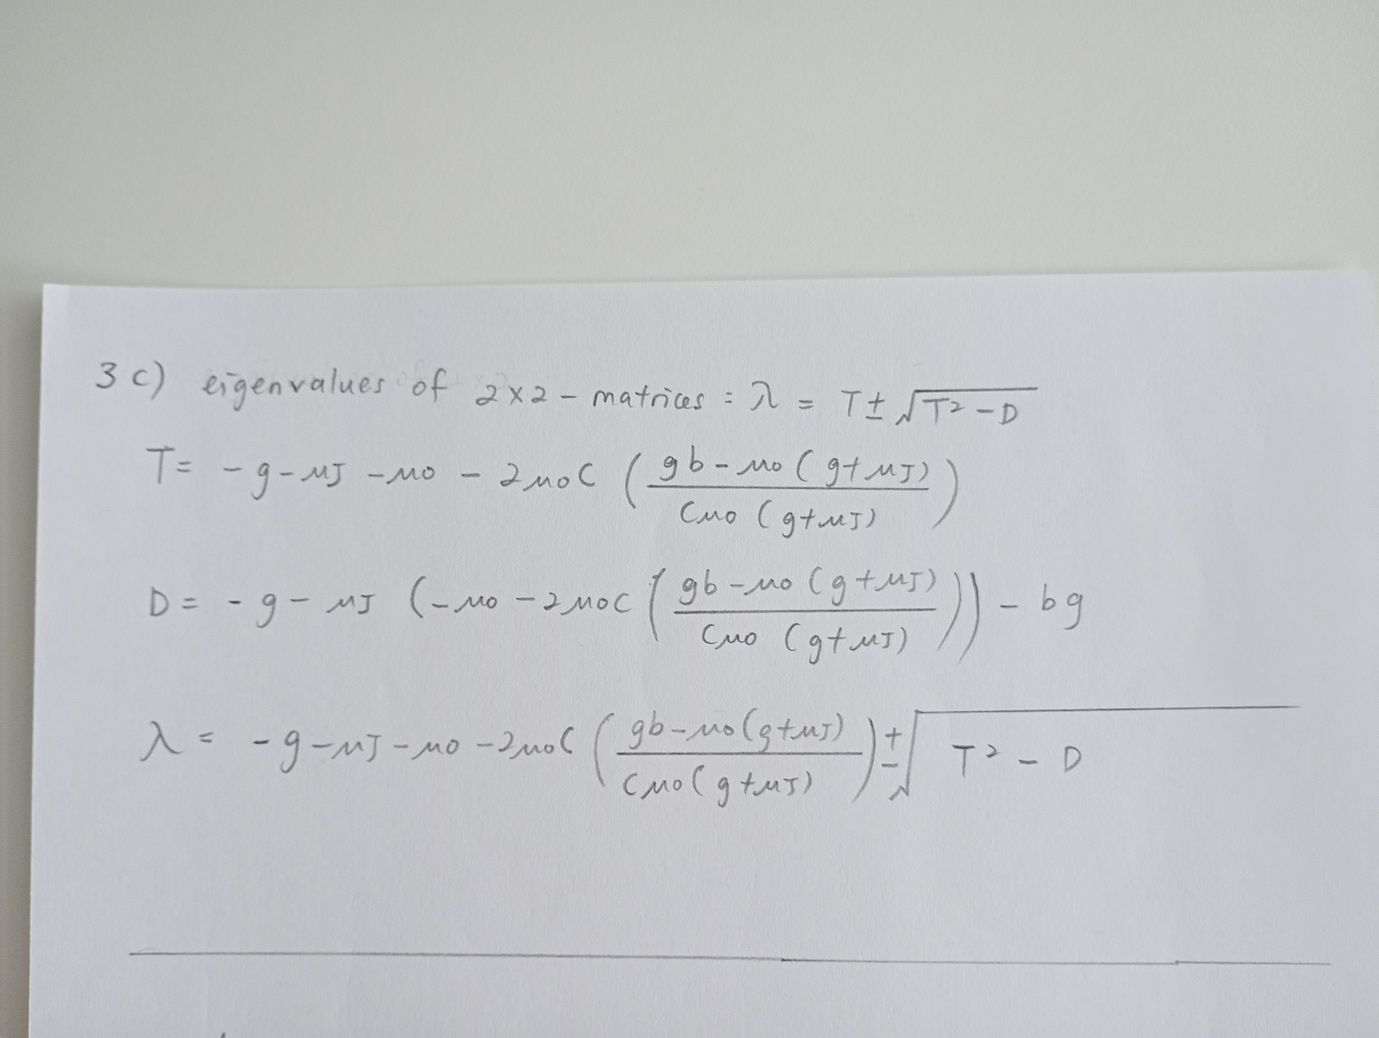 3 c) eigenvalues of 2×2 - matrices : λ = T ± √(T² - D)
T = - g - μJ - μ0 - 2μ0C ( (gb - μ0 (g + μJ)) / (Cμ0 (g + μJ)) )
D = - g - μJ (- μ0 - 2μ0C ( (gb - μ0 (g + μJ)) / (Cμ0 (g + μJ)) )) - bg
λ = - g - μJ - μ0 - 2μ0C ( (gb - μ0 (g + μJ)) / (Cμ0 (g + μJ)) ) ± √(T² - D)